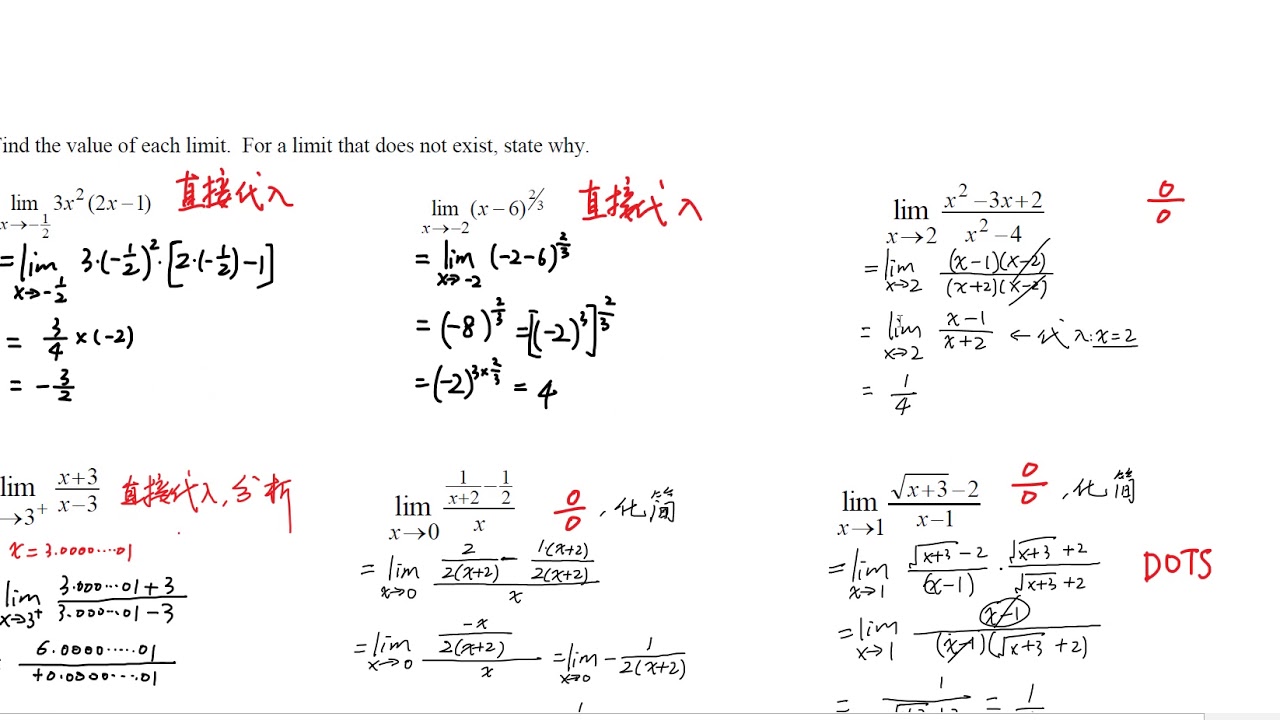 ind the value of each limit. For a limit that does not exist, state why.
lim x→-1/2 3x²(2x-1) 直接代入
= lim x→-1/2 3·(-1/2)²·[2·(-1/2)-1]
= 3/4 × (-2)
= -3/2
lim x→-2 (x-6)^(2/3) 直接代入
= lim x→-2 (-2-6)^(2/3)
= (-8)^(2/3) = [(-2)³]^(2/3)
= (-2)^(3×2/3) = 4
lim x→2 (x²-3x+2)/(x²-4) 0/0
= lim x→2 (x-1)(x-2)/(x+2)(x-2)
= lim x→2 (x-1)/(x+2) ← 代入:x=2
= 1/4
lim →3⁺ (x+3)/(x-3) 直接代入,分析
x=3.0000....01
lim x→3⁺ (3.000...01+3)/(3.000...01-3)
6.0000.....01/+0.0000...01
lim x→0 (1/(x+2) - 1/2)/x 0/0, 化简
= lim x→0 (2/2(x+2) - 1·(x+2)/2(x+2))/x
= lim x→0 (-x/2(x+2))/x = lim x→0 - 1/2(x+2)
1
lim x→1 (√(x+3)-2)/(x-1) 0/0, 化简
= lim x→1 (√(x+3)-2)/(x-1) · (√(x+3)+2)/(√(x+3)+2) DOTS
= lim x→1 (x-1)/(x-1)(√(x+3)+2)
= 1/ = 1/